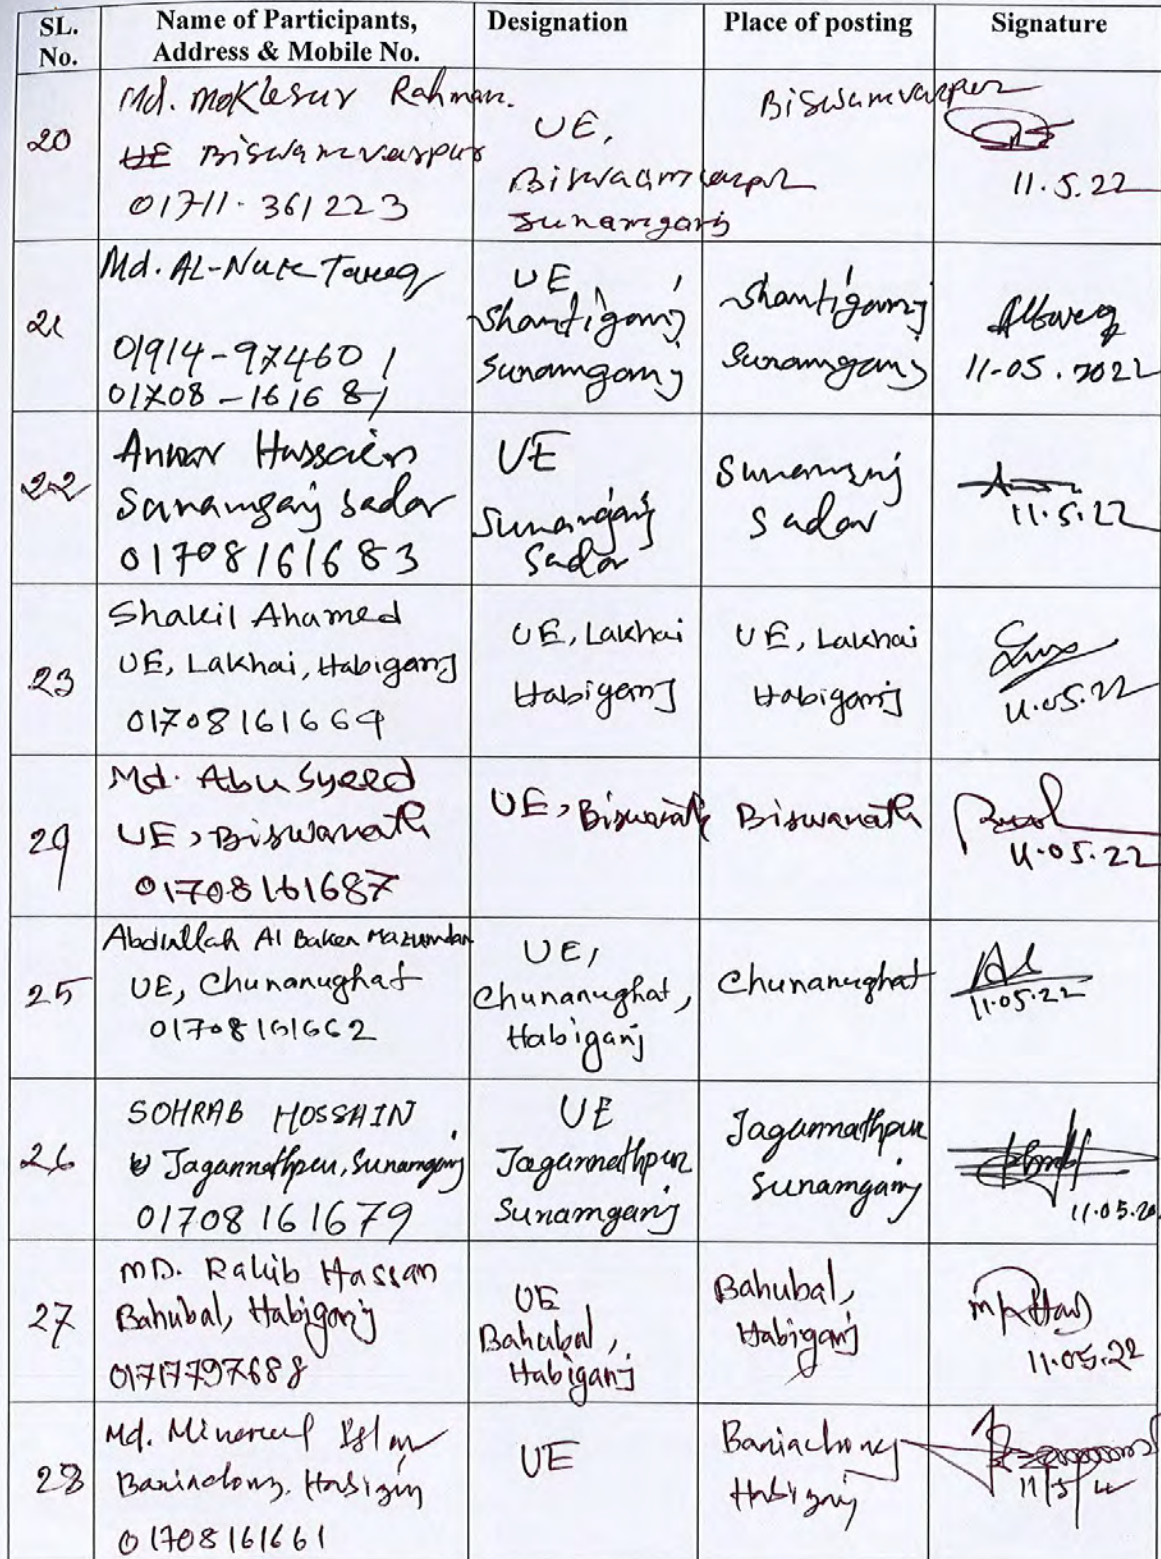 SL. No.
Name of Participants, Address & Mobile No.
Designation
Place of posting
Signature
20
Md. Moklesur Rahman.
UE Biswamvarpur
01711-361223
UE,
Biswamvarpur
Sunamganj
Biswamvarpur
11.5.22
21
Md. AL-Nur Tareq
01914-974601
01708-161681
UE,
Shantiganj
Sunamganj
Shantiganj
Sunamganj
11-05.2022
22
Anwar Hussain
Sunamganj Sadar
01708161683
UE
Sunamganj
Sadar
Sunamganj
Sadar
11.5.22
23
Shakil Ahamed
UE, Lakhai, Habiganj
01708161664
UE, Lakhai
Habiganj
UE, Lakhai
Habiganj
11.05.22
24
Md. Abu Syeed
UE, Biswanath
01708161687
UE, Biswanath
Biswanath
11.05.22
25
Abdullah Al Baker Mazumdar
UE, Chunarughat
01708161662
UE,
Chunarughat,
Habiganj
Chunarughat
11.05.22
26
SOHRAB HOSSAIN
Jagannathpur, Sunamganj
01708161679
UE
Jagannathpur
Sunamganj
Jagannathpur
Sunamganj
11.05.20
27
MD. Rakib Hassan
Bahubal, Habiganj
01717797688
UE
Bahubal,
Habiganj
Bahubal,
Habiganj
11.05.22
28
Md. Minarul Islam
Baniachong, Habiganj
01708161661
UE
Baniachong
Habiganj
11/5/22